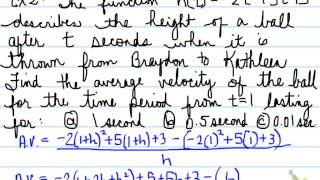 The function
describes the height of a ball
after t seconds when it is
thrown from Braydon to Kathleen
Find the average velocity of the ball
for the time period from t=1 lasting
for: ⓐ 1 second ⓑ 0.5 second ⓒ 0.01 sec
A.V. = -2(1+h)²+5(1+h)+3 - (-2(1)²+5(1)+3)
h